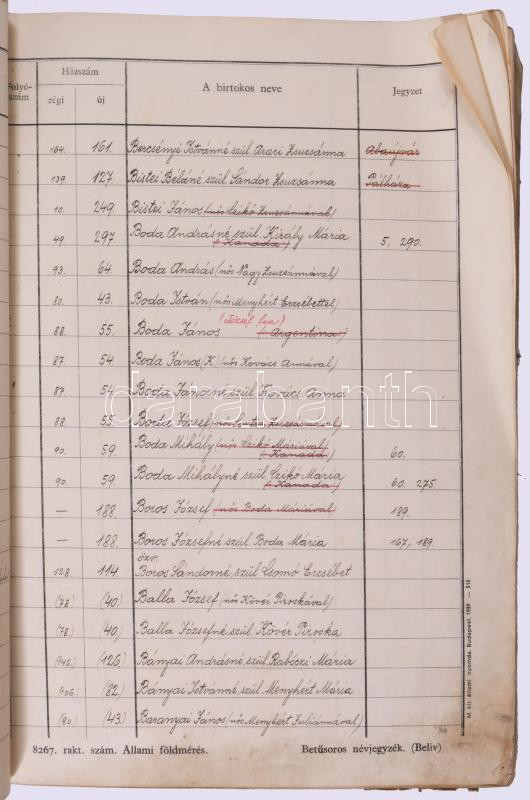 Folyó-
szám
Házszám
régi
új
A birtokos neve
Jegyzet
164. 161. Bercsényi Istvánné szül. Azari Zsuzsánna Abaújvár
139. 127. Bistei Béláné szül. Sándor Zsuzsánna Pálháza
10. 249. Bistei János (nős Czikó Zsuzsánnával)
49. 297. Boda Andrásné szül. Király Mária 5, 290.
(Kanada)
93. 64. Boda András (nős Nagy Zsuzsánnával)
80. 43. Boda István (nős Menyhért Erzsébettel)
(József fia)
88. 55. Boda János (Argentina)
87. 54. Boda János (K.) (nős Kovács Annával)
87. 54. Boda Jánosné szül. Kovács Anna
88. 55. Boda József (nős Zsuzsánnával)
90. 59. Boda Mihály (nős Czikó Máriával) 60.
(Kanada)
90. 59. Boda Mihályné szül. Czikó Mária 60. 275
(Kanada)
— 188. Boros József (nős Boda Máriával) 189.
— 188. Boros Józsefné szül. Boda Mária 167, 189.
özv.
128 114. Boros Sándorné szül. Csomó Erzsébet
(78.) (40.) Balla József (nős Kövér Piroskával)
(78.) (40.) Balla Józsefné szül. Kövér Piroska
(145.) (126.) Bányai Andrásné szül. Rabóczi Mária
(106.) (82.) Bányai Istvánné szül. Menyhért Mária
(80.) (43.) Baranyai János (nős Menyhért Juliánnával)
8267. rakt. szám. Állami földmérés. Betűsoros névjegyzék. (Beliv)
M. kir. állami nyomda. Budapest, 1939. — 518.
darabanth